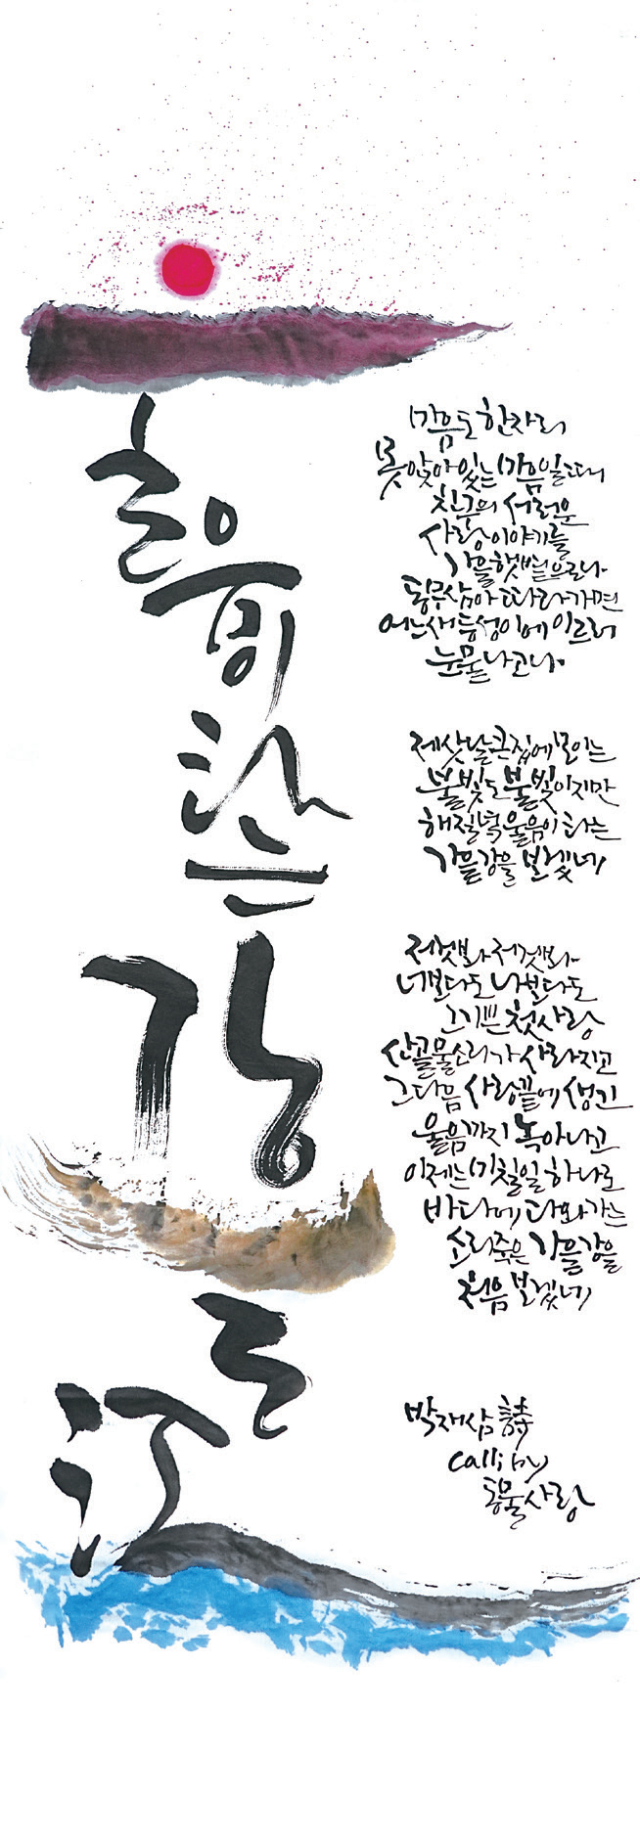 울음이
타는
가을
江
마음도 한자리
못 앉아있는 마음일 때
친구의 서러운
사랑이야기를
가을햇볕으로나
동무삼아 따라가면
어느새 등성이에 이르러
눈물나고나.
제삿날 큰집에 모이는
불빛도 불빛이지만
해질녘 울음이 타는
가을강을 보겠네
저것봐 저것봐
너보다도 나보다도
그 기쁜 첫사랑
산골물소리가 사라지고
그 다음 사랑끝에 생긴
울음까지 녹아나고
이제는 미칠일 하나로
바다에 다와가는
소리죽은 가을강을
처음 보겠네
박재삼 詩
Calli by